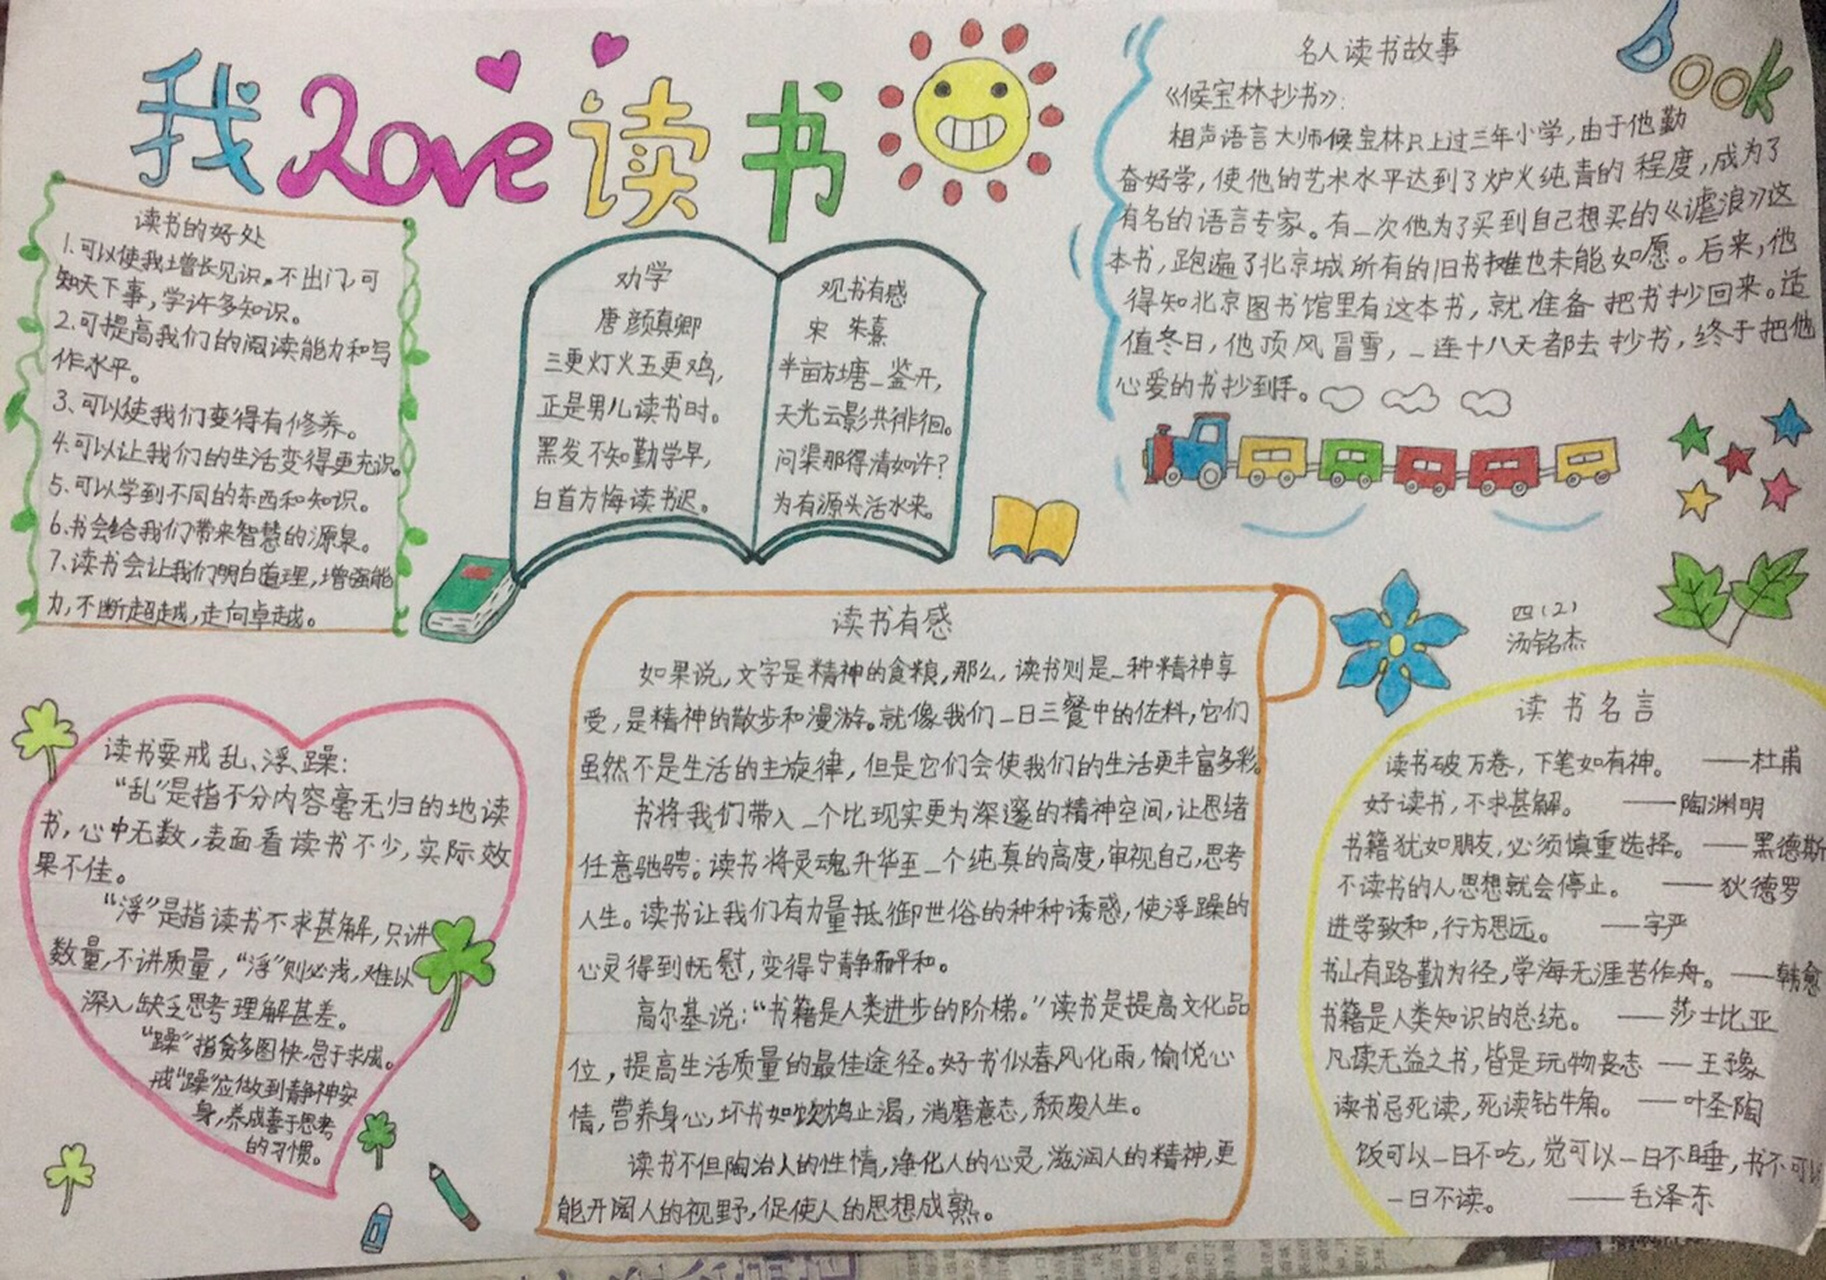 我Love读书
读书的好处
1.可以使我增长见识。不出门,可
知天下事,学许多知识。
2.可提高我们的阅读能力和写
作水平。
3.可以使我们变得有修养。
4.可以让我们的生活变得更充识。
5.可以学到不同的东西和知识。
6.书会给我们带来智慧的源泉。
7.读书会让我们明白道理,增强能
力,不断超越,走向卓越。
劝学
唐 颜真卿
三更灯火五更鸡,
正是男儿读书时。
黑发不知勤学早,
白首方悔读书迟。
观书有感
宋 朱熹
半亩方塘一鉴开,
天光云影共徘徊。
问渠那得清如许?
为有源头活水来。
Book
名人读书故事
《候宝林抄书》:
相声语言大师候宝林只上过三年小学,由于他勤
奋好学,使他的艺术水平达到了炉火纯青的程度,成为了
有名的语言专家。有一次他为了买到自己想买的《谑浪》这
本书,跑遍了北京城所有的旧书摊也未能如愿。后来,他
得知北京图书馆里有这本书,就准备把书抄回来。适
值冬日,他顶风冒雪,一连十八天都去抄书,终于把他
心爱的书抄到手。
四(2)
汤铭杰
读书要戒乱、浮、躁:
“乱”是指不分内容毫无归的地读
书,心中无数,表面看读书不少,实际效
果不佳。
“浮”是指读书不求甚解,只讲
数量,不讲质量,“浮”则必浅,难以
深入缺乏思考理解甚差。
“躁”指贪多图快,急于求成。
戒“躁”应做到静神安
身,养成善于思考
的习惯。
读书有感
如果说,文字是精神的食粮,那么,读书则是一种精神享
受,是精神的散步和漫游。就像我们一日三餐中的佐料,它们
虽然不是生活的主旋律,但是它们会使我们的生活更丰富多彩。
书将我们带入一个比现实更为深邃的精神空间,让思绪
任意驰骋;读书将灵魂升华至一个纯真的高度,审视自己,思考
人生。读书让我们有力量抵御世俗的种种诱惑,使浮躁的
心灵得到怃慰,变得宁静而平和。
高尔基说:“书籍是人类进步的阶梯。”读书是提高文化品
位,提高生活质量的最佳途径。好书似春风化雨,愉悦心
情,营养身心,坏书如饮鸩止渴,消磨意志,颓废人生。
读书不但陶冶人的性情,净化人的心灵,滋润人的精神,更
能开阔人的视野,促使人的思想成熟。
读书名言
读书破万卷,下笔如有神。——杜甫
好读书,不求甚解。——陶渊明
书籍犹如朋友,必须慎重选择。——黑德斯
不读书的人思想就会停止。——狄德罗
进学致和,行方思远。——字严
书山有路勤为径,学海无涯苦作舟。——韩愈
书籍是人类知识的总统。——莎士比亚
凡读无益之书,皆是玩物丧志——王豫
读书忌死读,死读钻牛角。——叶圣陶
饭可以一日不吃,觉可以一日不睡,书不可以
一日不读。——毛泽东